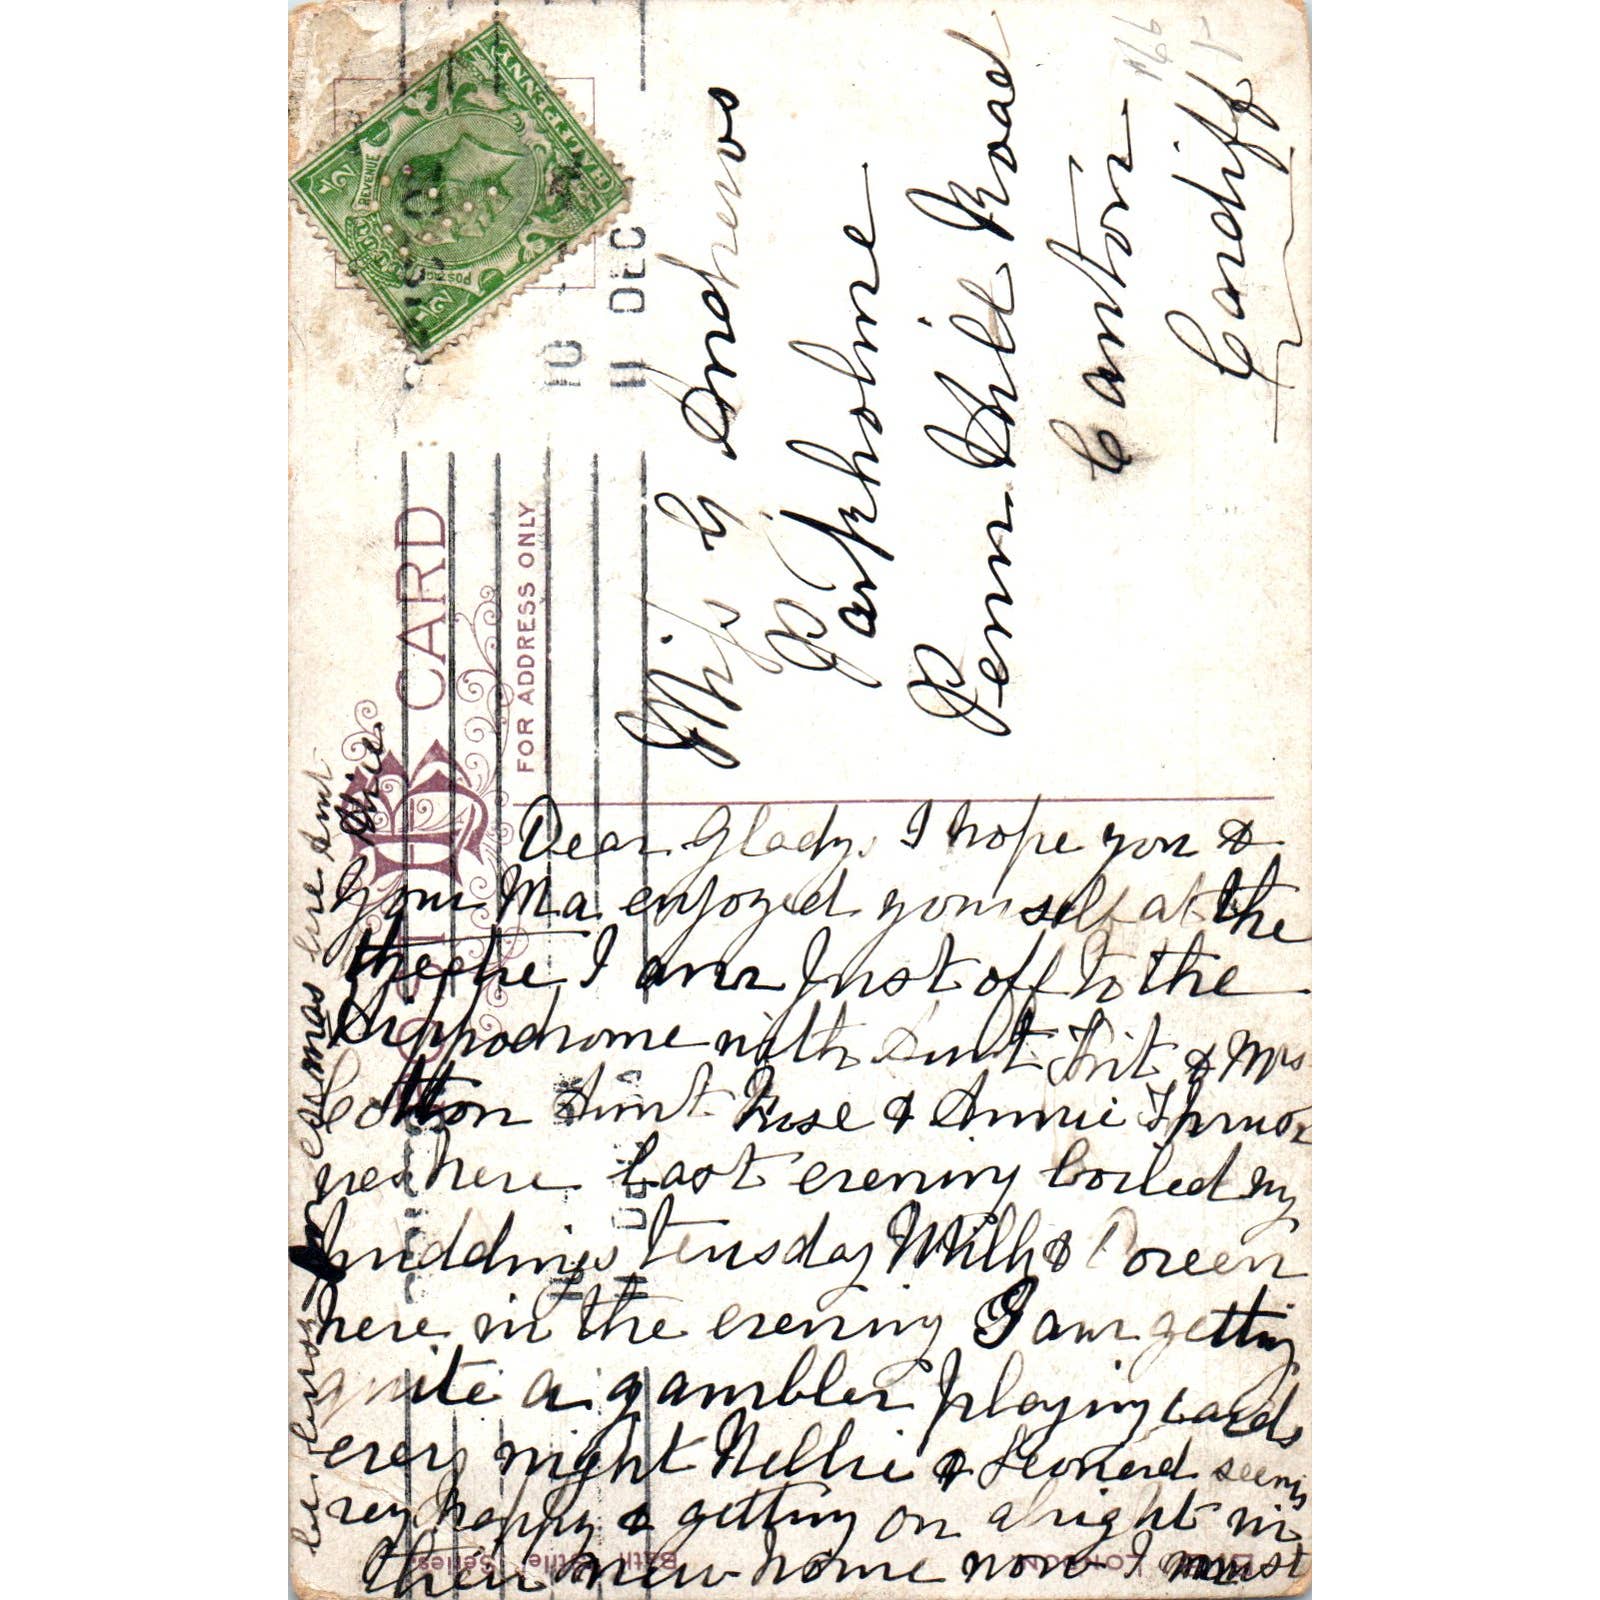 POST CARD
FOR ADDRESS ONLY
HALFPENNY
POSTAGE
REVENUE
1/2
1/2
10
11 DEC
Miss G Andrews
Parkholme
Penn Hill Road
Canton
Cardiff
Dear Gladys I hope you &
your Ma enjoyed yourself at the
I am Just off to the
Hippodrome with Aunt & Mrs
Cotton Aunt Rose & Annie
here Last evening boiled my
puddings teusday Will & Doreen
here in the evening I am getting
quite a gambler playing cards
every night Nellie & Leonard seems
very happy & getting on alright in
their new home now I must
love Aunt
LONDON
Bath
Series